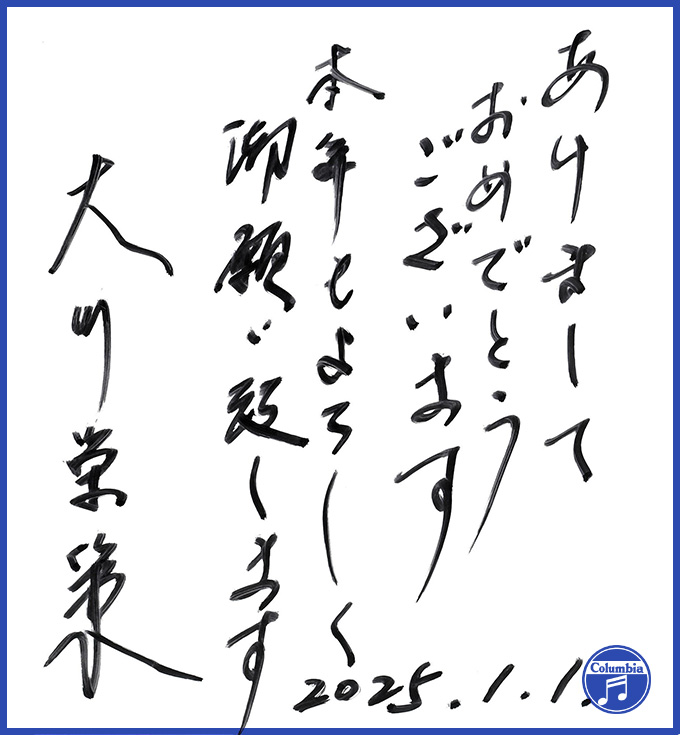 あけまして
おめでとう
ございます
本年もよろしく
御願い致します
大川栄策
2025.1.1.
Columbia